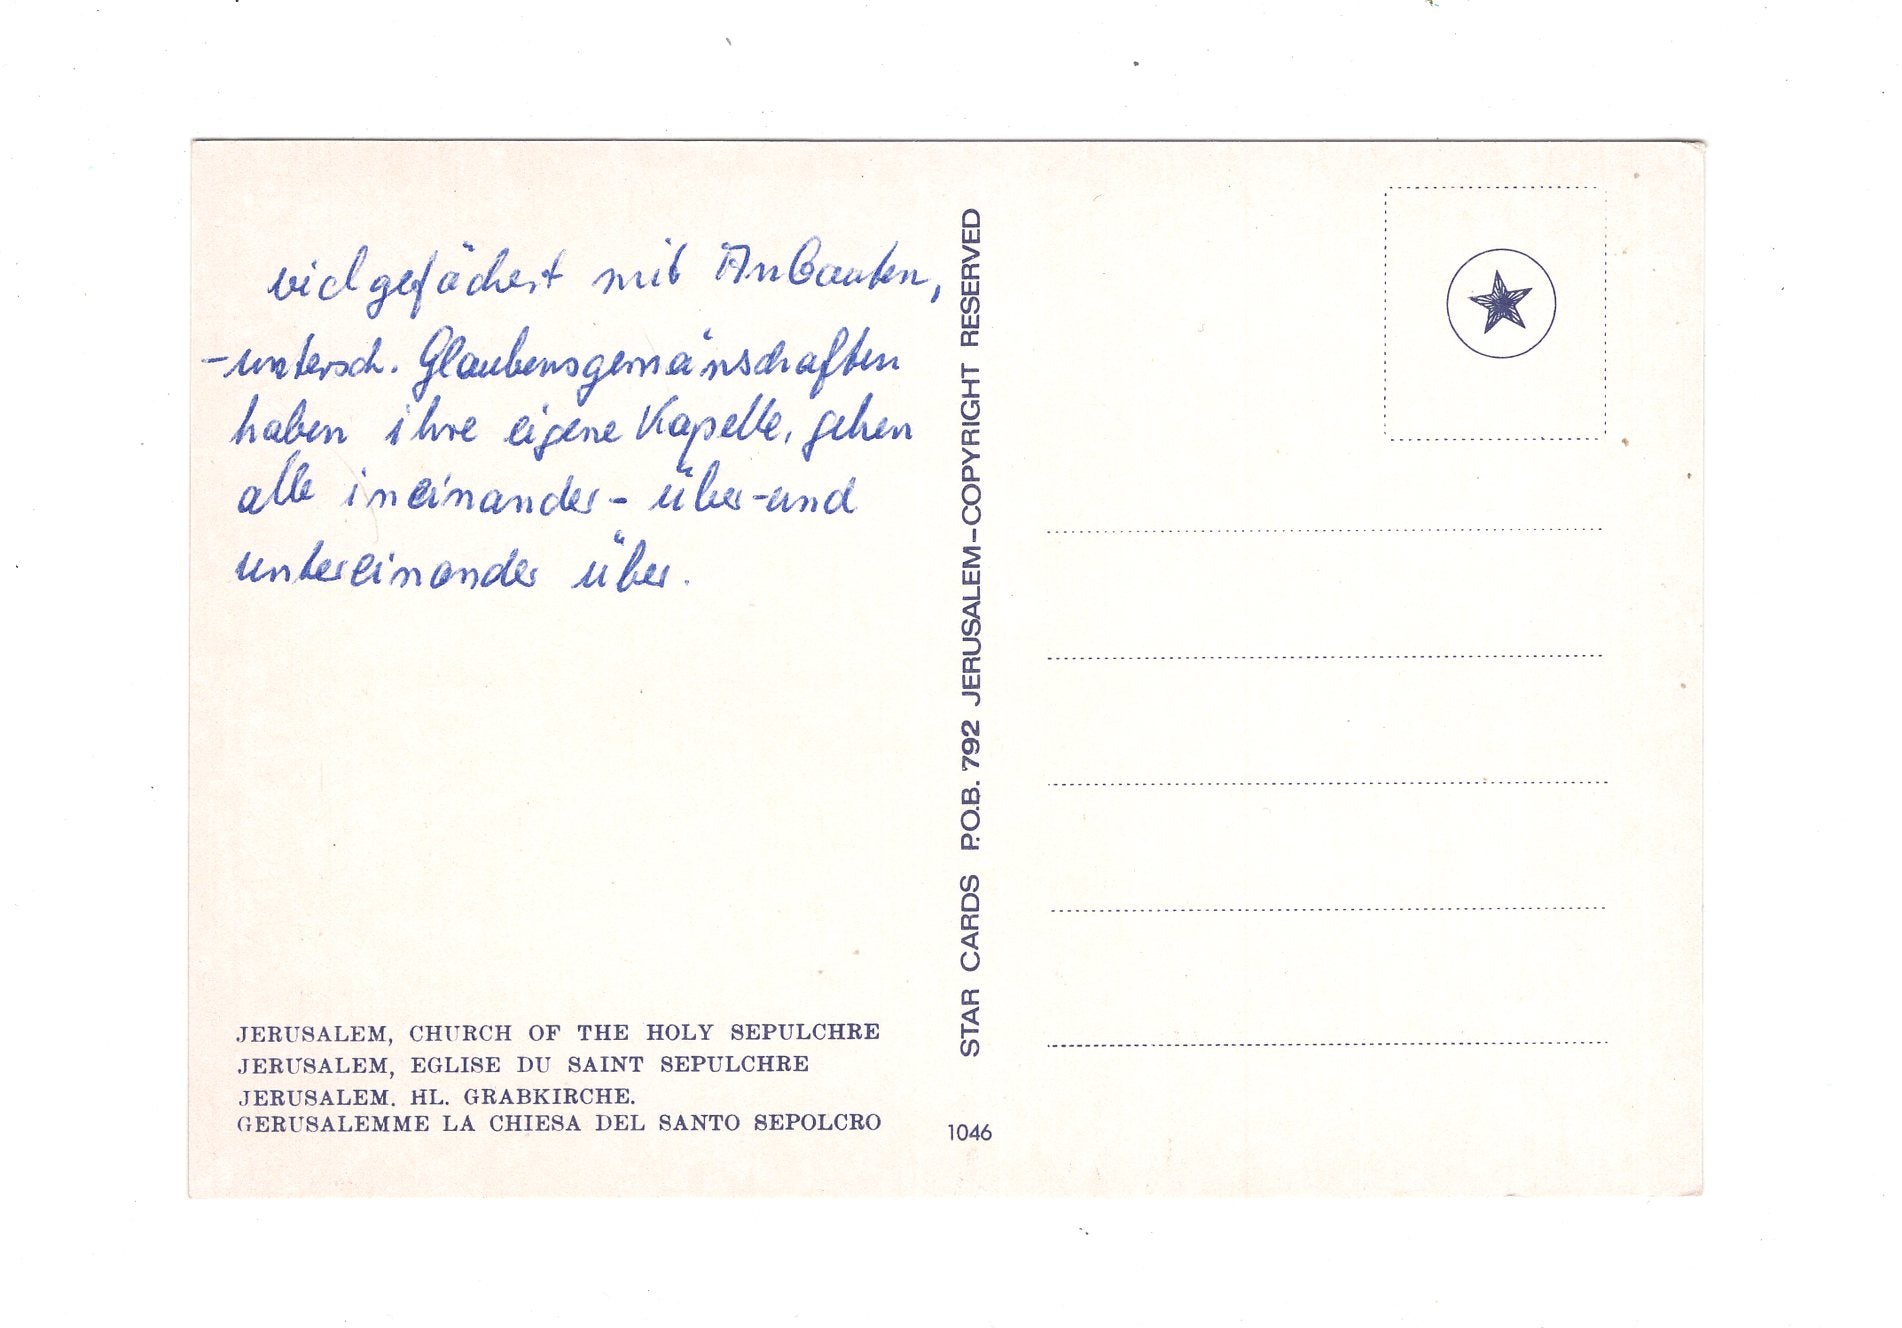 vielgefächert mit Anbauten,
-untersch. Glaubensgemänschaften
haben ihre eigene Kapelle, gehen
alle ineinander- über-und
untereinander über.
JERUSALEM, CHURCH OF THE HOLY SEPULCHRE
JERUSALEM, EGLISE DU SAINT SEPULCHRE
JERUSALEM. HL. GRABKIRCHE.
GERUSALEMME LA CHIESA DEL SANTO SEPOLCRO
STAR CARDS P.O.B. 792 JERUSALEM-COPYRIGHT RESERVED
1046